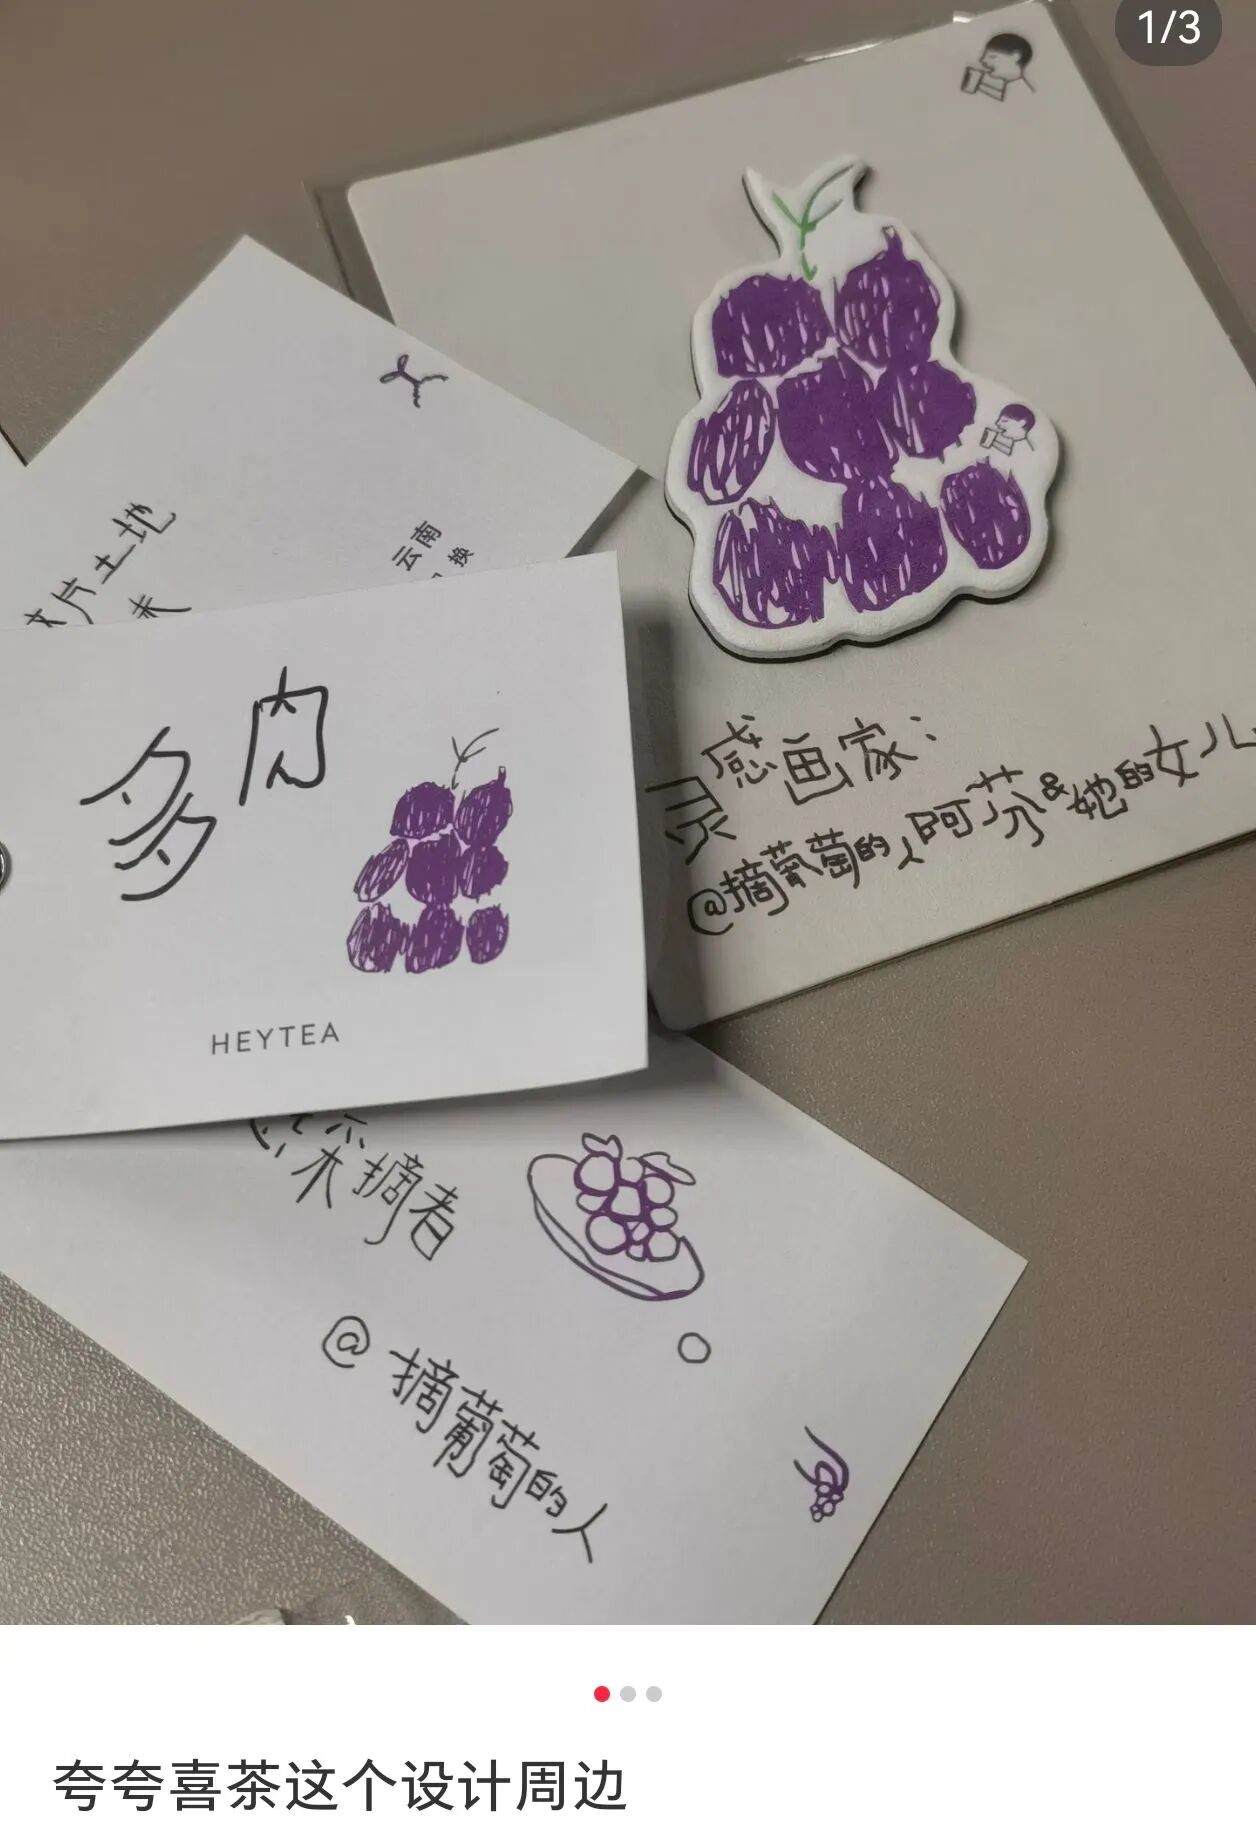 1/3
土地
云南
换
多肉
HEYTEA
灵感画家：
@摘葡萄的人阿芬&她的女儿
采摘者
@摘葡萄的人
夸夸喜茶这个设计周边